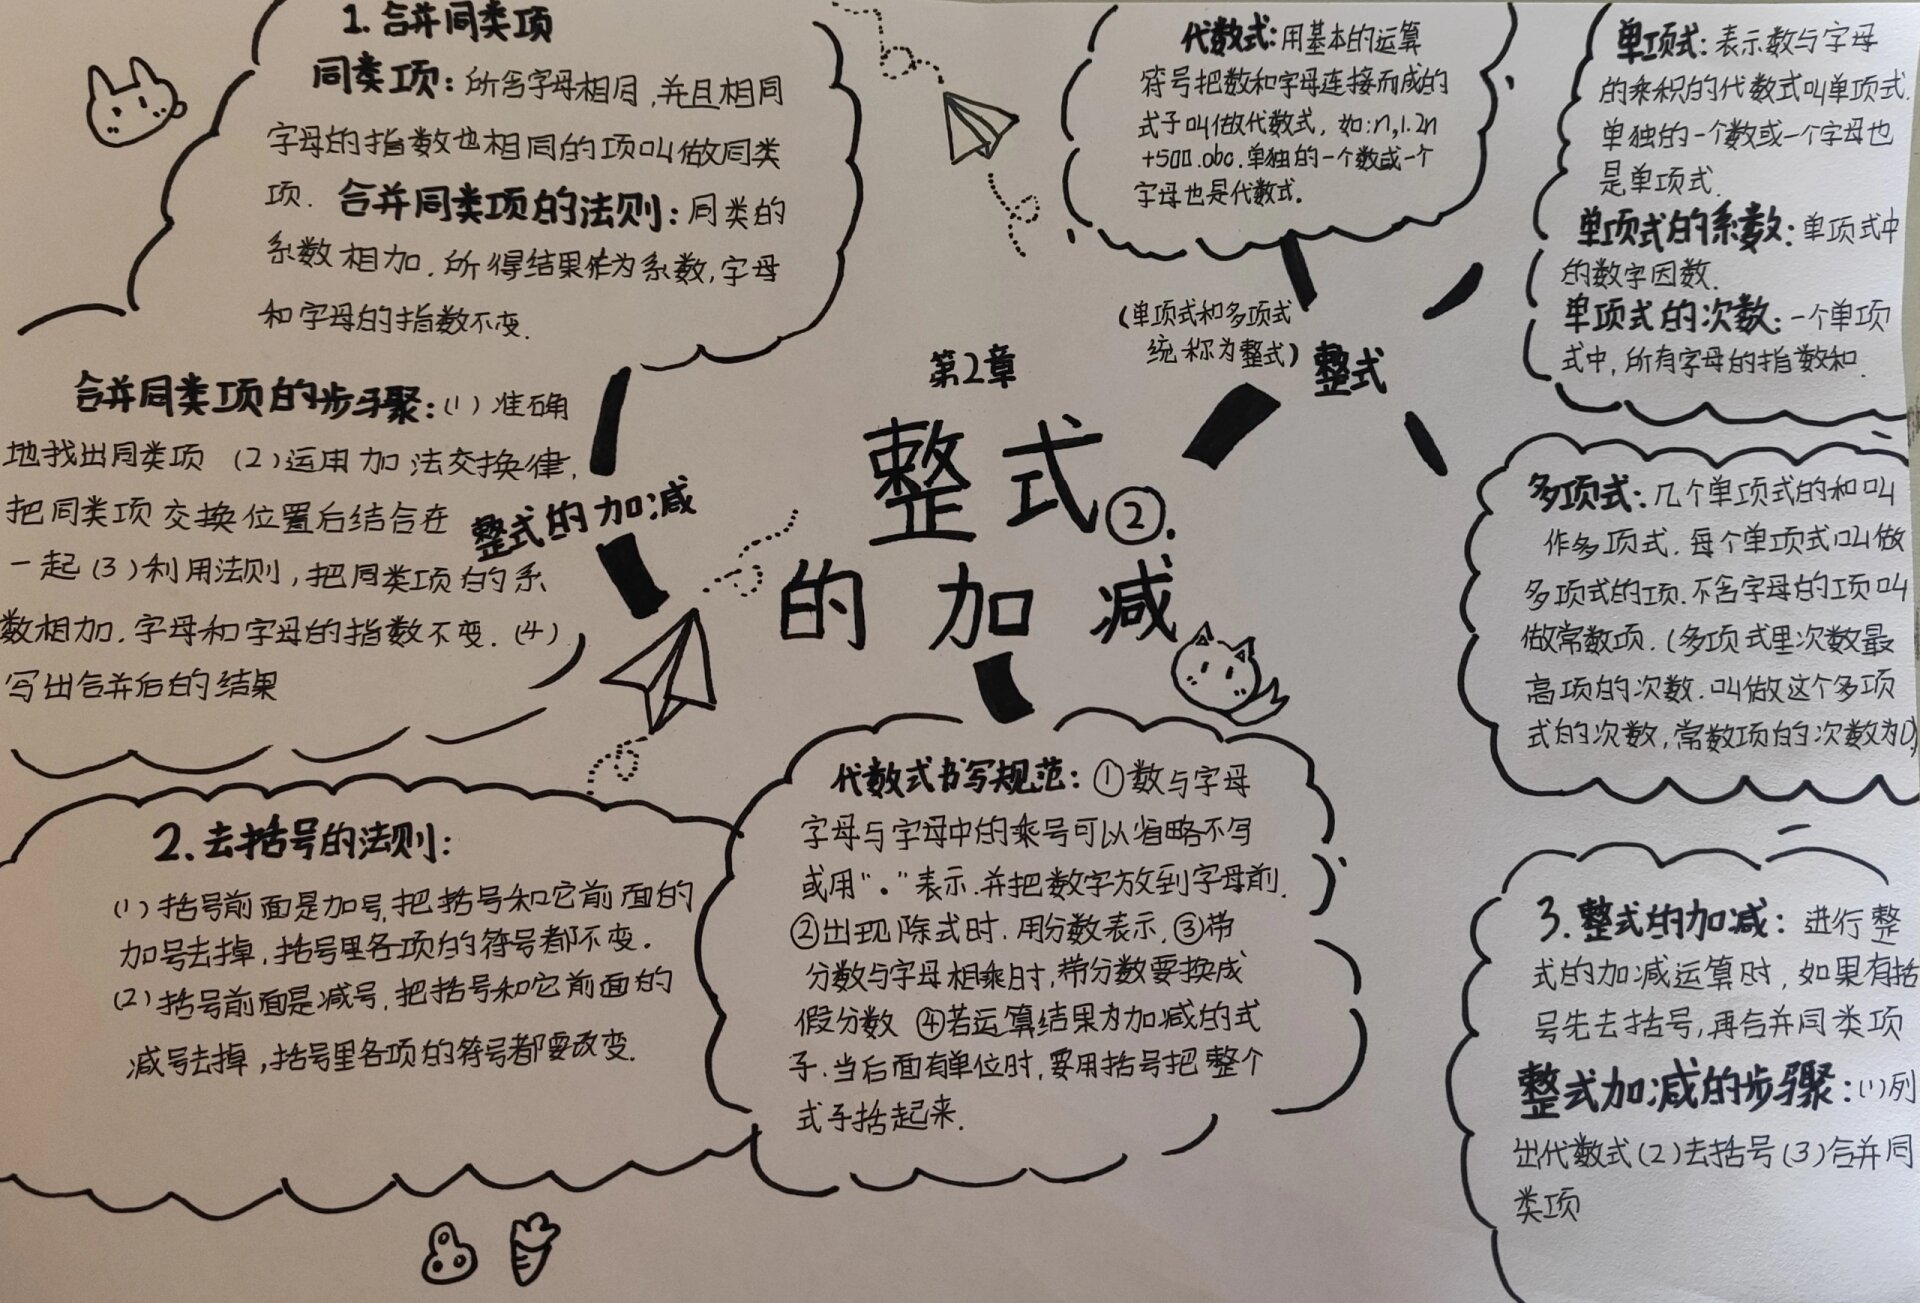 1. 合并同类项
同类项：所含字母相同，并且相同
字母的指数也相同的项叫做同类
项. 合并同类项的法则：同类的
系数相加，所得结果作为系数，字母
和字母的指数不变.
合并同类项的步骤：(1) 准确
地找出同类项 (2) 运用加法交换律，
把同类项交换位置后结合在
一起 (3) 利用法则，把同类项的系
数相加，字母和字母的指数不变. (4)
写出合并后的结果
整式的加减
2. 去括号的法则：
(1) 括号前面是加号，把括号和它前面的
加号去掉，括号里各项的符号都不变.
(2) 括号前面是减号，把括号和它前面的
减号去掉，括号里各项的符号都要改变.
第2章
整式②.
的加减
代数式：用基本的运算
符号把数和字母连接而成的
式子叫做代数式，如：n,1.2n
+500.abc.单独的一个数或一个
字母也是代数式.
(单项式和多项式
统称为整式)
整式
代数式书写规范：①数与字母
字母与字母中的乘号可以省略不写
或用“·”表示.并把数字放到字母前.
②出现除式时，用分数表示.③带
分数与字母相乘时，带分数要换成
假分数 ④若运算结果为加减的式
子.当后面有单位时，要用括号把整个
式子括起来.
单项式：表示数与字母
的乘积的代数式叫单项式.
单独的一个数或一个字母也
是单项式.
单项式的系数：单项式中
的数字因数.
单项式的次数：一个单项
式中，所有字母的指数和.
多项式：几个单项式的和叫
作多项式.每个单项式叫做
多项式的项.不含字母的项叫
做常数项.(多项式里次数最
高项的次数.叫做这个多项
式的次数，常数项的次数为0)
3. 整式的加减：进行整
式的加减运算时，如果有括
号先去括号，再合并同类项
整式加减的步骤：(1)列
出代数式(2)去括号(3)合并同
类项